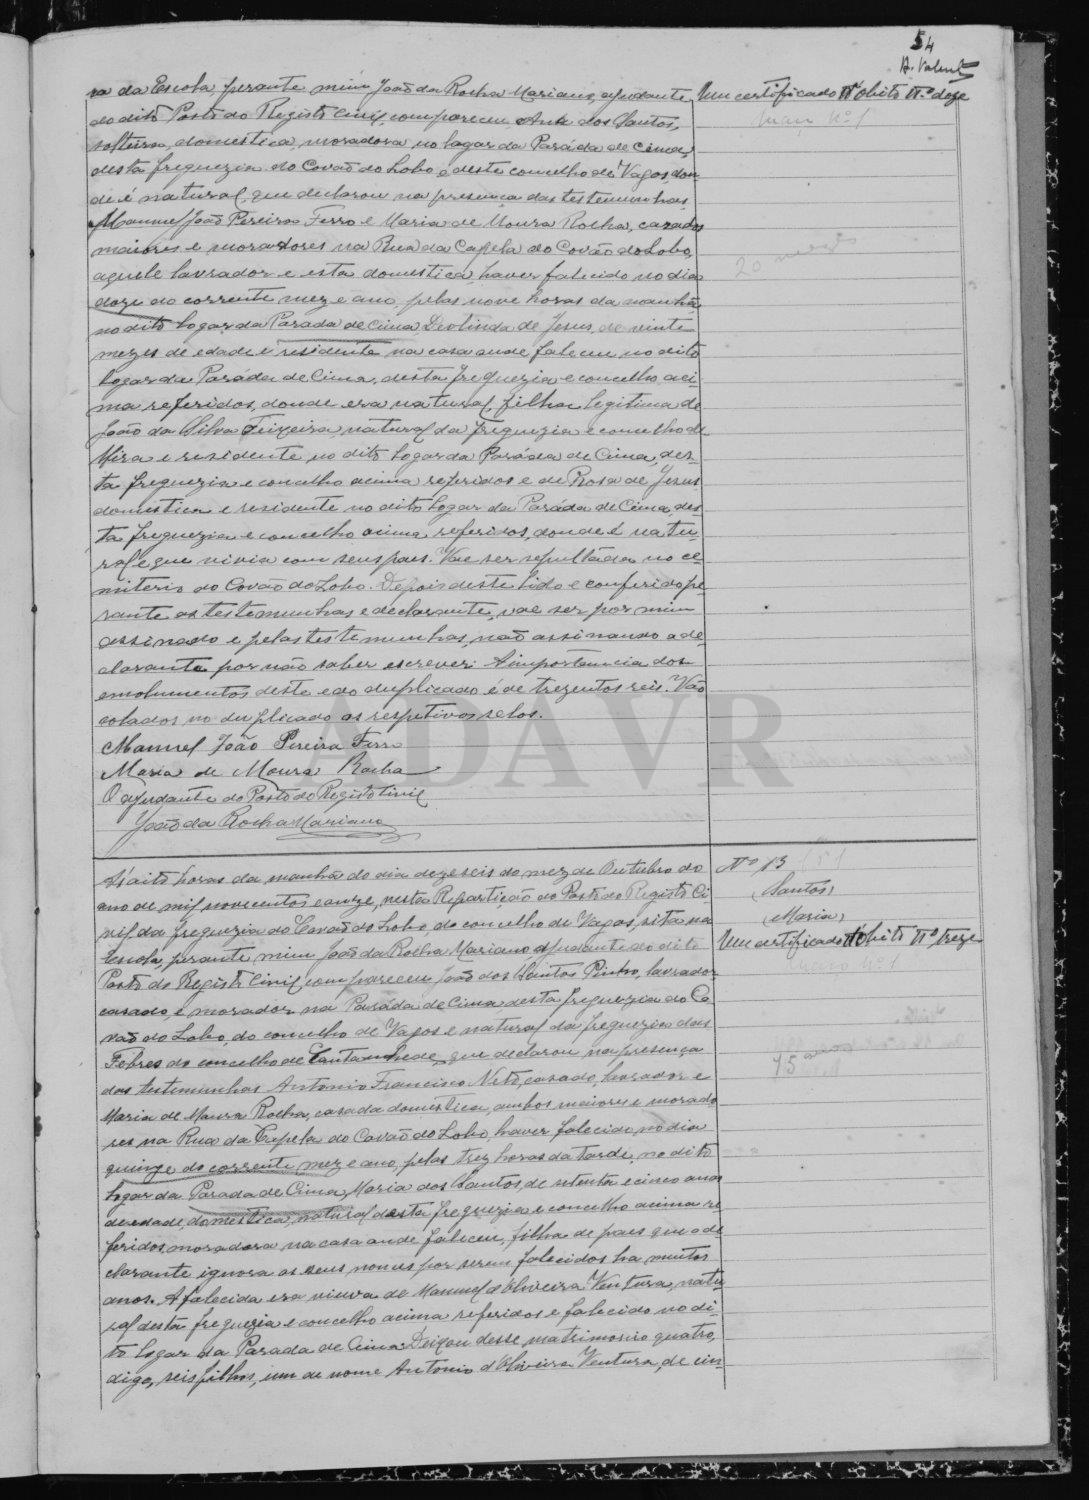 54
ra da Escola, perante mim João da Rocha Mariano, ajudante
do dito Posto do Registo Civil, compareceu Ana dos Santos,
solteira, domestica, moradora no logar da Paráda de Cima,
desta freguezia do Covão do Lobo, e deste concelho de Vagos, don
de é natural, que declarou na presença das testemunhas
Manuel João Pereira Ferro e Maria de Moura Rocha, casados
maiores e moradores na Rua da Capela do Covão do Lobo,
aquele lavrador e esta domestica, haver falecido no dia
doze do corrente mez e ano, pelas nove horas da manhã
no dito logar da Parada de Cima Deolinda de Jesus, de vinte
mezes de edade e residente na casa onde faleceu no dito
logar da Paráda de Cima, desta freguezia e concelho aci-
ma referidos, donde era natural, filha legitima de
João da Silva Teixeira, natural da freguezia e concelho de
Mira e residente no dito logar da Paráda de Cima, des-
ta freguezia e concelho acima referidos e de Rosa de Jesus
domestica e residente no dito logar da Paráda de Cima, des
ta freguezia e concelho acima referidos, donde é natu-
ral e que vivia com seus pais. Vae ser sepultáda no ce-
miterio do Covão do Lobo. Depois deste lido e conferido pe
rante as testemunhas e declarante, vae ser por mim
assinado e pelas testemunhas, não assinando a de
clarante por não saber escrever. A importancia dos
emolumentos deste e do duplicado é de trezentos reis. Vão
colados no duplicado os respetivos selos.
Manuel João Pereira Ferro
Maria de Moura Rocha
O ajudante do Posto do Registo Civil
João da Rocha Mariano
Um certificado d'obito Nº doze
20 mezes
ADAVR
A's oito horas da manhã do dia dezeseis do mez de Outubro do
ano de mil novecentos e onze, nesta Repartição do Posto do Registo Ci-
vil da freguezia do Covão do Lobo, do concelho de Vagos, sita na
Escola, perante mim João da Rocha Mariano ajudante do dito
Posto do Registo Civil compareceu João dos Santos Pinho, lavrador
casado, e morador na Paráda de Cima desta freguezia do Co
vão do Lobo, do concelho de Vagos e natural da freguezia das
Febres do concelho de Cantanhede, que declarou na presença
das testemunhas Antonio Francisco Neto, casado, lavrador e
Maria de Moura Rocha, casada domestica, ambos maiores e morado
res na Rua da Capela do Covão do Lobo, haver falecido no dia
quinze do corrente mez e ano, pelas trez horas da tarde, no dito
logar da Parada de Cima, Maria dos Santos, de setenta e cinco anos
de edade, domestica, natural desta freguezia e concelho acima re
feridos, moradora na casa onde faleceu, filha de paes que o de
clarante ignora os seus nomes por serem falecidos ha muitos
anos. A falecida era viuva de Manuel d'Oliveira Ventura, natu-
ral desta freguezia e concelho acima referidos e falecido no di-
to logar da Parada de Cima. Deixou desse matrimonio quatro,
digo, seis filhos, um de nome Antonio d'Oliveira Ventura, de cin-
Nº 13
(Santos)
(Maria)
Um certificado d'obito Nº treze
75 anos